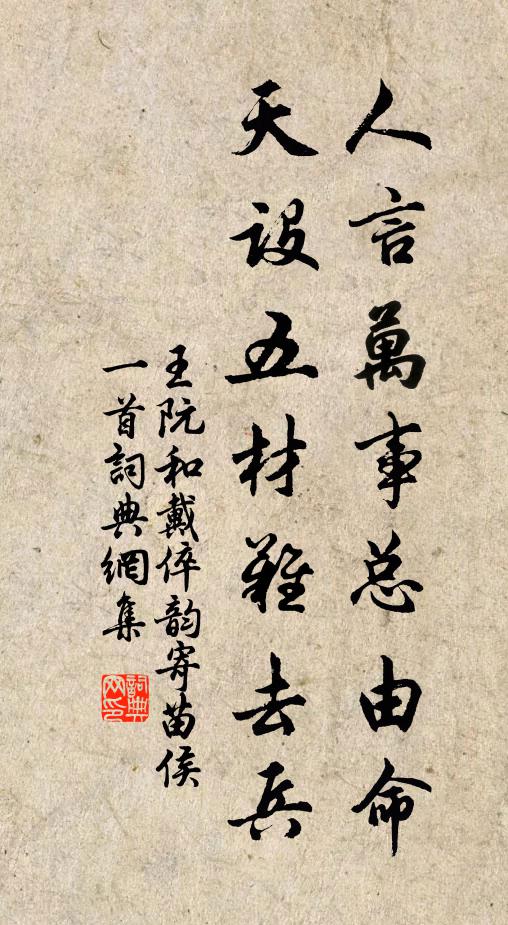 人言萬事总由命
天設五材難去兵
王阮和戴倅韵寄苗侯
一首詞典網集
詞典網印